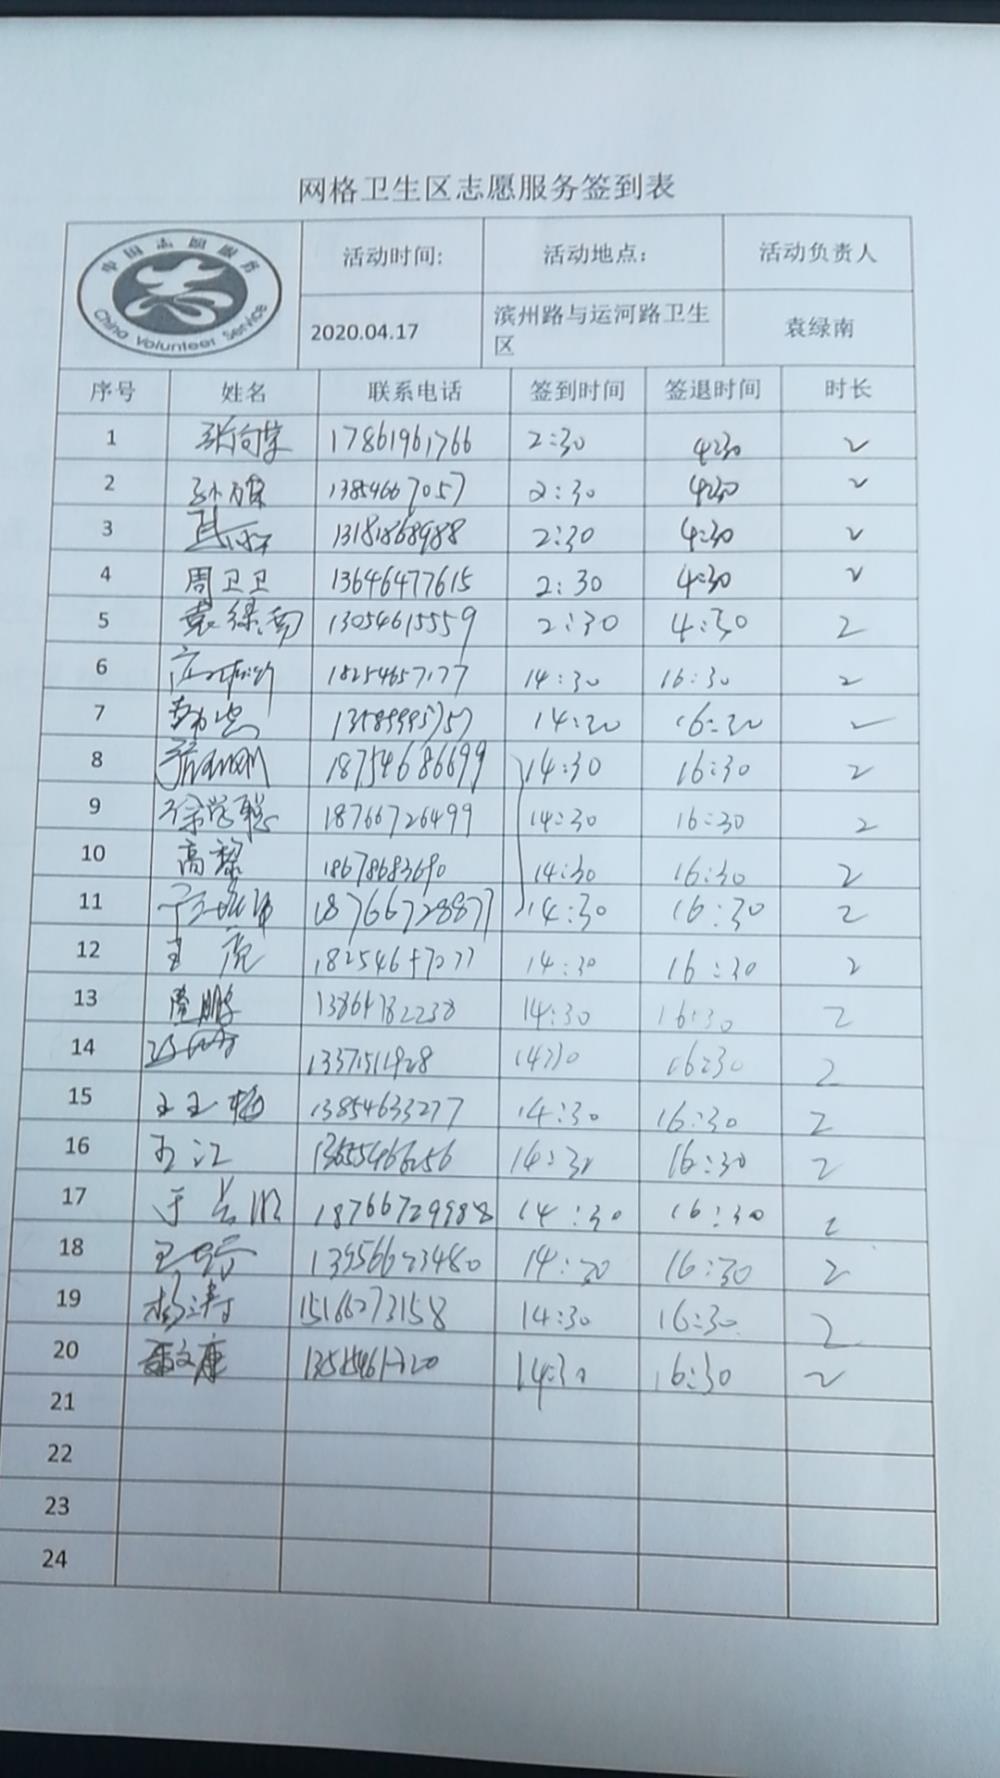 网格卫生区志愿服务签到表
中国志愿服务
China Volunteer Service
活动时间: 活动地点: 活动负责人
2020.04.17 滨州路与运河路卫生区 袁绿南
序号 姓名 联系电话 签到时间 签退时间 时长
1 17861961766 2:30 4:30 2
2 13854667057 2:30 4:30 2
3 13181868988 2:30 4:30 2
4 周卫卫 13646477615 2:30 4:30 2
5 袁绿南 13054615559 2:30 4:30 2
6 18254657177 14:30 16:30 2
7 14:30 16:30 2
8 18754686699 14:30 16:30 2
9 徐学聪 18766726499 14:30 16:30 2
10 高黎 18678683690 14:30 16:30 2
11 18766728877 14:30 16:30 2
12 王虎 14:30 16:30 2
13 14:30 16:30 2
14 13371511928 14:30 16:30 2
15 13854633277 14:30 16:30 2
16 14:30 16:30 2
17 18766729988 14:30 16:30 2
18 14:30 16:30 2
19 杨涛 15166273158 14:30 16:30 2
20 14:30 16:30 2
21
22
23
24